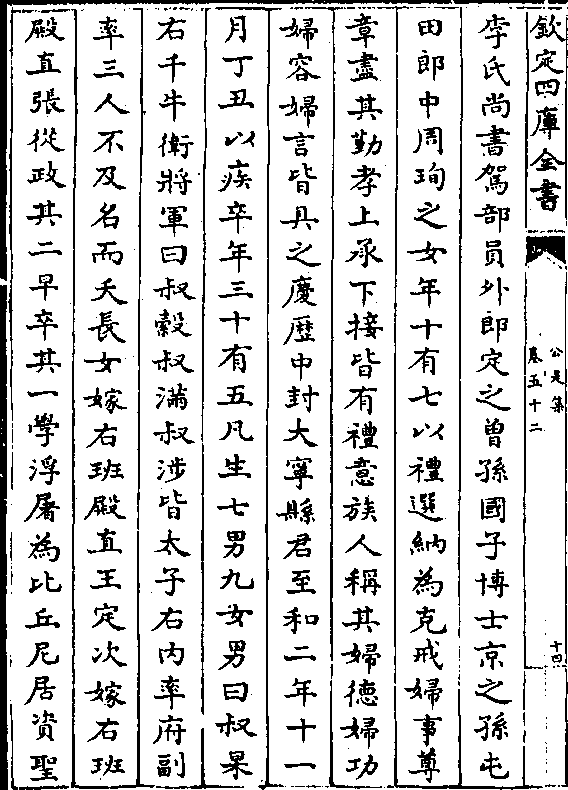 欽定四庫全書
公是集
卷五十二
十四
李氏尚書駕部員外郎定之曾孫國子博士京之孫屯
田郎中周珣之女年十有七以禮選納為克戒婦事尊
章盡其勤孝上承下接皆有禮意族人稱其婦德婦功
婦容婦言皆具之慶歴中封大寧縣君至和二年十一
月丁丑以疾卒年三十有五凡生七男九女男曰叔杲
右千牛衛將軍曰叔縠叔滿叔涉皆太子右内率府副
率三人不及名而夭長女嫁右班殿直王定次嫁右班
殿直張從政其二早卒其一學浮屠為比丘尼居資聖